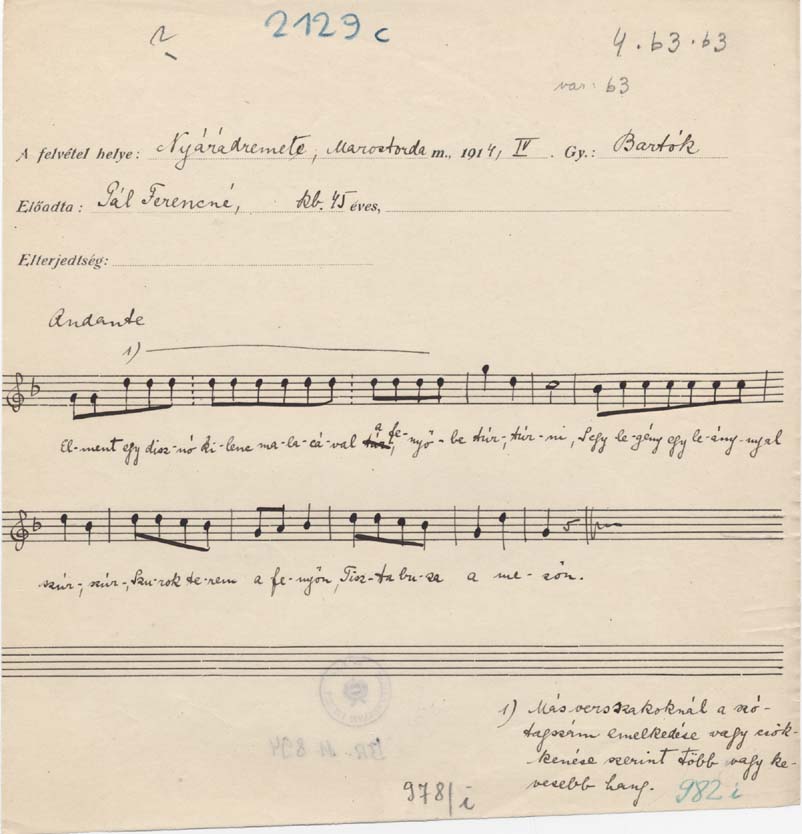 2129 c
4.63.63
var: 63
A felvétel helye: Nyárádremete, Marostorda m., 1914, IV. Gy.: Bartók
Előadta: Pál Ferencné, kb. 45 éves,
Elterjedtség:
Andante
1)
El-ment egy disz-nó ki-lenc ma-la-cá-val a fe-nyő-be túr-, túr-ni, S egy le-gény egy le-ány-nyal
szúr-, szúr-, Szu-rok te-rem a fe-nyőn, Tisz-ta bu-za a me-zőn.
1) Más versszakoknál a szó-
tagszám emelkedése vagy csök-
kenése szerint több vagy ke-
vesebb hang.
978/i
982 i